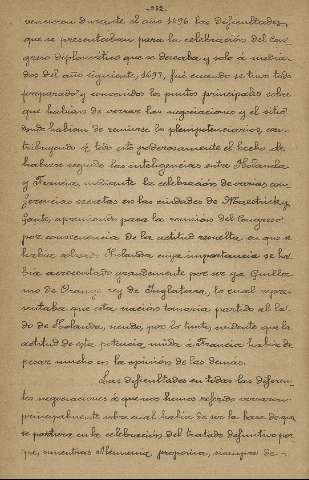 -932-
vencieron durante el año 1696 las dificultades,
que se presentaban para la celebración del Con-
greso diplomático que se deseaba, y solo á media-
dos del año siguiente, 1697, fué cuando se tuvo todo
preparado y convenidos los puntos principales sobre
que habían de versar las negociaciones y el sitio
donde habían de reunirse los plenipotenciarios, con-
tribuyendo á todo esto poderosamente el hecho de
haberse seguido las inteligencias entre Holanda
y Francia, mediante la celebración de varias con-
ferencias secretas en las ciudades de Maestrick y
Gante, apremiando para la reunión del Congreso
por consecuencia de la actitud resuelta, en que se
había Holanda cuya importancia se ha-
bía acrecentado grandemente por ser ya Guiller-
mo de Orange rey de Inglaterra, lo cual repre-
sentaba que esta nación tomaría partido al la-
do de Holanda, siendo, por lo tanto, evidente que la
actitud de esta potencia unida á Francia había de
pesar mucho en la opinión de las demás.
Las dificultades en todas las diferen-
tes negociaciones á que nos hemos referido versaron
principalmente sobre cual había de ser la base de que
se partiera en la celebración del tratado definitivo por-
que, mientras Alemania, proponía, siempre de-